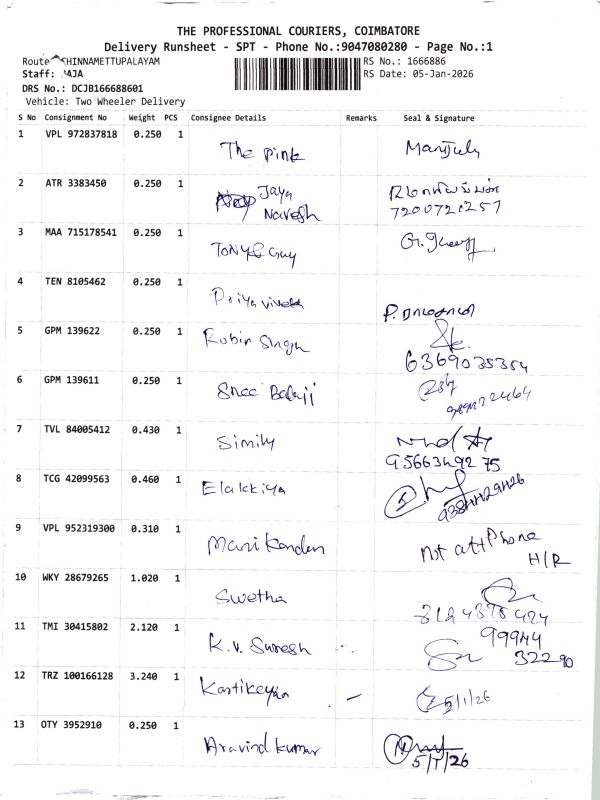 THE PROFESSIONAL COURIERS, COIMBATORE
Delivery Runsheet - SPT - Phone No.:9047080280 - Page No.:1
Route CHINNAMETTUPALAYAM RS No.: 1666886
Staff: RS Date: 05-Jan-2026
DRS No.: DCJB166688601
Vehicle: Two Wheeler Delivery
S No Consignment No Weight PCS Consignee Details Remarks Seal & Signature
1 VPL 972837818 0.250 1
The Pink Manjula
2 ATR 3383450 0.250 1
Jaya
Navesh 7200721257
3 MAA 715178541 0.250 1
Tony & Guy
4 TEN 8105462 0.250 1
Priya vivek P. ராமசாமி
5 GPM 139622 0.250 1
Robin Singh
6369035354
6 GPM 139611 0.250 1
Sree Balaji
7 TVL 84005412 0.430 1
Simily
9566349275
8 TCG 42099563 0.460 1
Elakkiya
9 VPL 952319300 0.310 1
Manikandan Not att Phone
H/R
10 WKY 28679265 1.020 1
Swetha
11 TMI 30415802 2.120 1
K.V. Suresh 99944
32290
12 TRZ 100166128 3.240 1
Kartikeyan 5/1/26
13 OTY 3952910 0.250 1
Aravind kumar
5/1/26